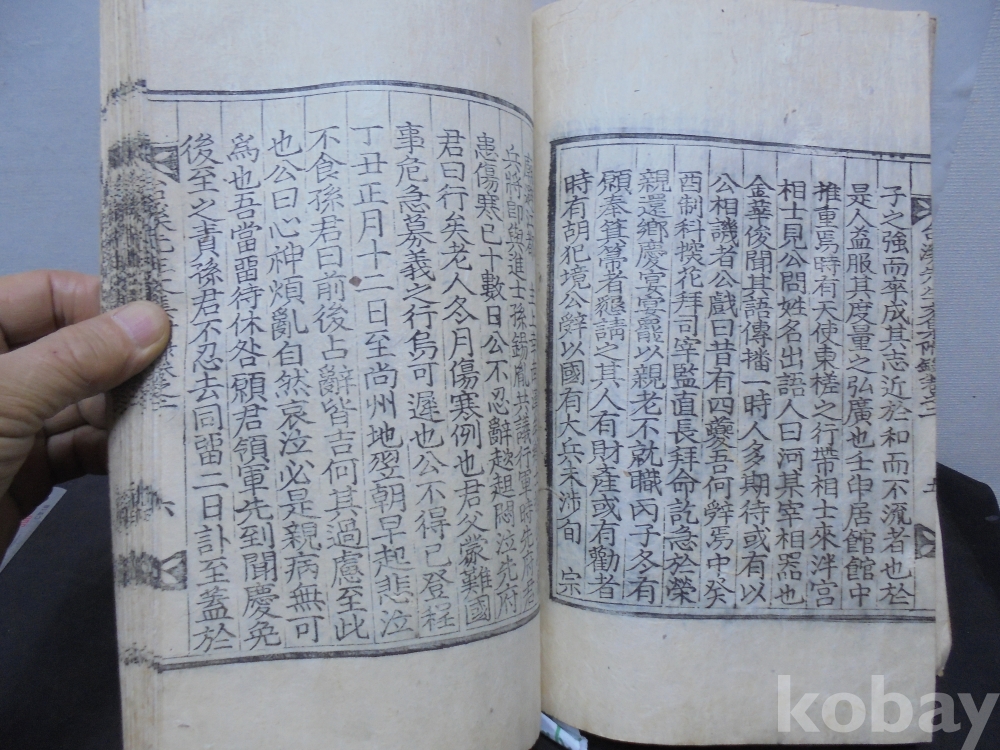 子之強而卒成其志近於和而不流者也於
是人益服其度量之弘廣也壬申居館館中
推重焉時有天使東槎之行帶相士來泮宮
相士見公問姓名出語人曰河某宰相器也
金華俊聞其語傳播一時人多期待或有以
公相譏者公戲曰昔有四夔吾何辭焉中癸
酉制科探花拜司宰監直長拜命訖急於榮
親還鄉慶宴宴罷以親老不就職內子冬有
願奉箕箒者懇請之其人有財產或有勸者
時有胡犯境公辭以國有大兵未涉旬 宗
兵將卽與進士孫錫胤共議行軍時先府君
患傷寒已十數日公不忍辭趑趄悶泣先府
君曰行矣老人冬月傷寒例也君父蒙難國
事危急募義之行烏可遲也公不得已登程
丁丑正月十二日至尙州地翌朝早起悲泣
不食孫君曰前後占辭皆吉何其過慮至此
也公曰心神煩亂自然哀泣必是親病無可
爲也吾當留待休咎願君領軍先到聞慶免
後至之責孫君不忍去同留二日訃至蓋於
六
kobay